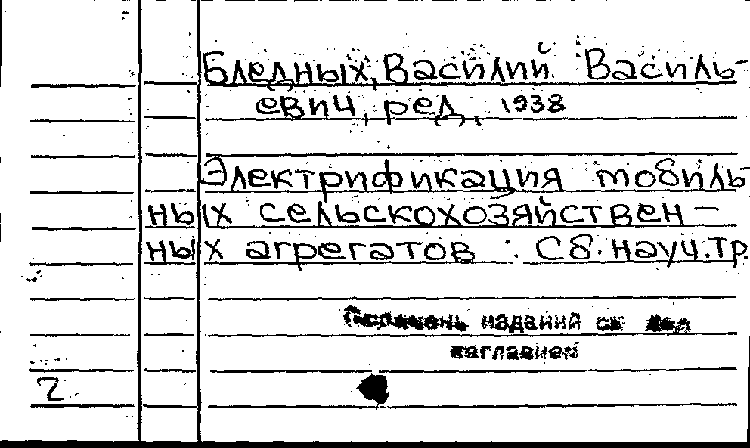 Бледных, Василий Василь-
евич, ред., 1938
Электрификация мобиль-
ных сельскохозяйствен-
ных агрегатов : Сб. науч. тр.
Перечень изданий см. под
заглавием
2